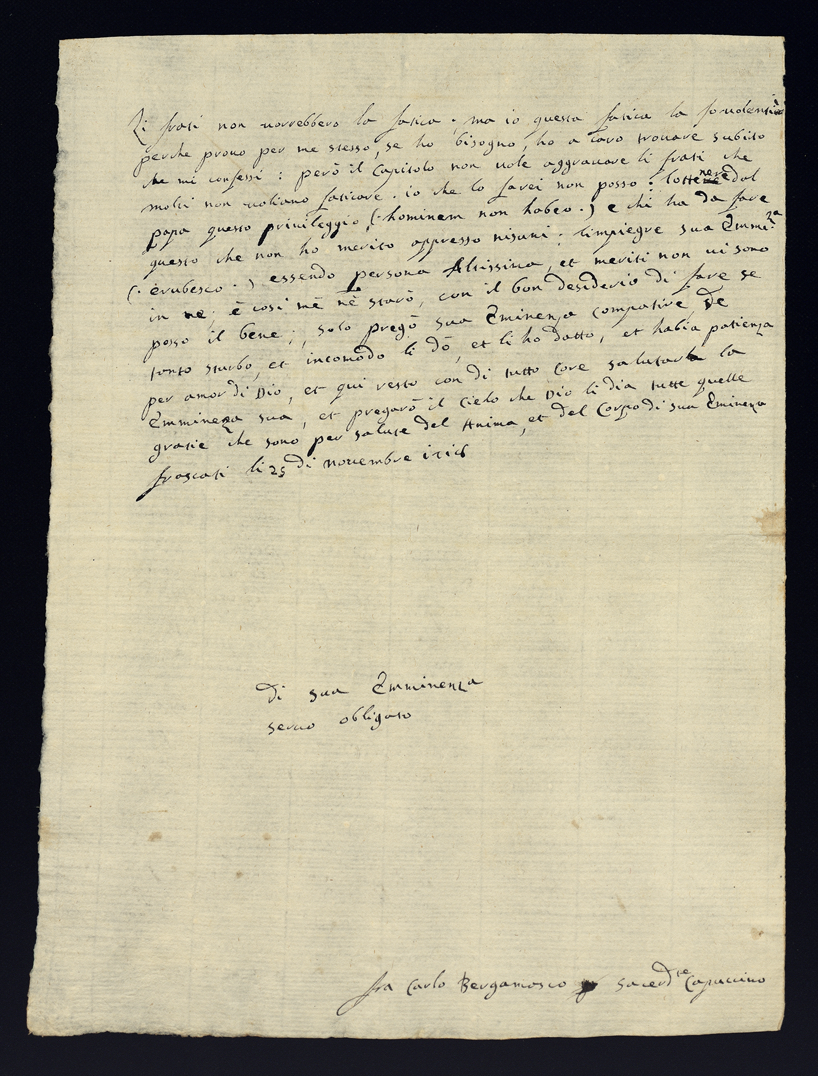 li frati non vorrebbero la fatica; ma io questa fatica la
perche provo per me stesso, se ho bisogno, ho a caro trovare subito
che mi confessi: però il Capitolo non vole aggravare li frati che
molti non voliano faticare. io che lo farei non posso: l'ottenere dal
papa questo privileggio, (·hominem non habeo·) e chi ha da fare
questo che non ho merito appresso nisuni; limpiegre sua Emmi.za
(·erubesco·) essendo persona Altissima, et meriti non vi sono
in me; è così mè nè starò, con il bon desiderio di fare se
posso il bene; solo pregò sua Eminenza compatire, se
tanto sturbo, et incomodo li dò, et li ho datto, et habia patienza
per amor di Dio, et qui resto con di tutto Core salutarla la
Emminenza sua, et pregarò il Cielo che Dio li dia tutte quelle
gratie che sono per salute del Anima, et del Corpo di sua Eminenza
frascati li 25 di novembre 1716
di sua Emminenza
servo obligato
fra Carlo Bergamasco sacerd.te Capuccino